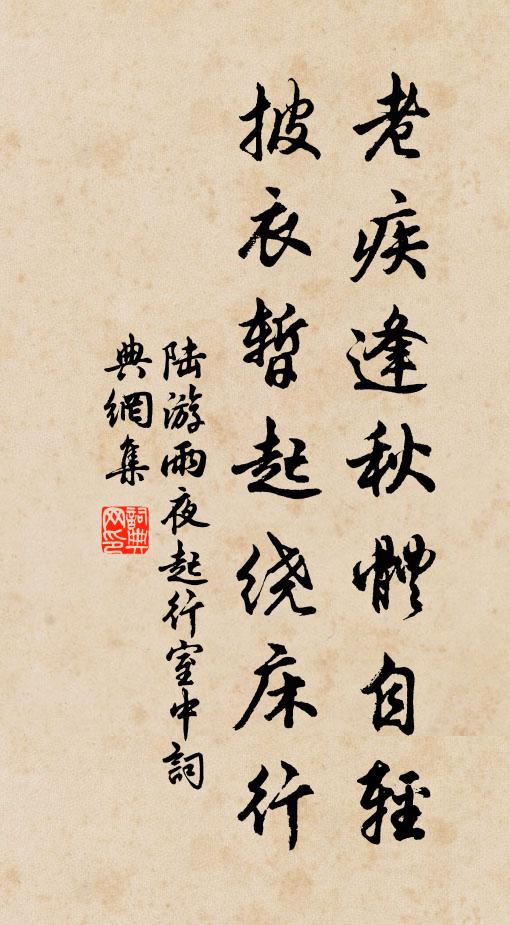 老疾逢秋體自輕
披衣暫起绕床行
陆游雨夜起行室中詞
典網集
詞典
网印